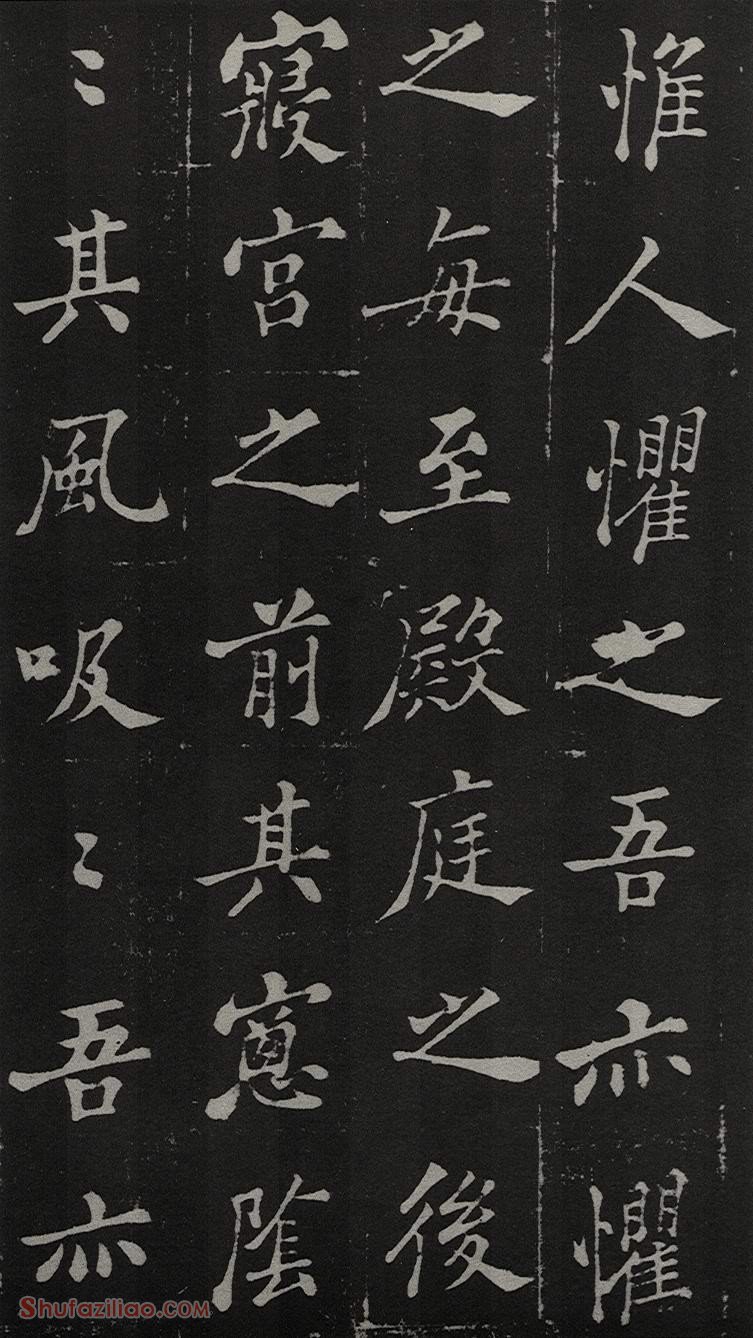 惟人懼之吾亦懼
之每至殿庭之後
寢宮之前其窻陰
〻其風吸〻吾亦
Shufaziliao.com